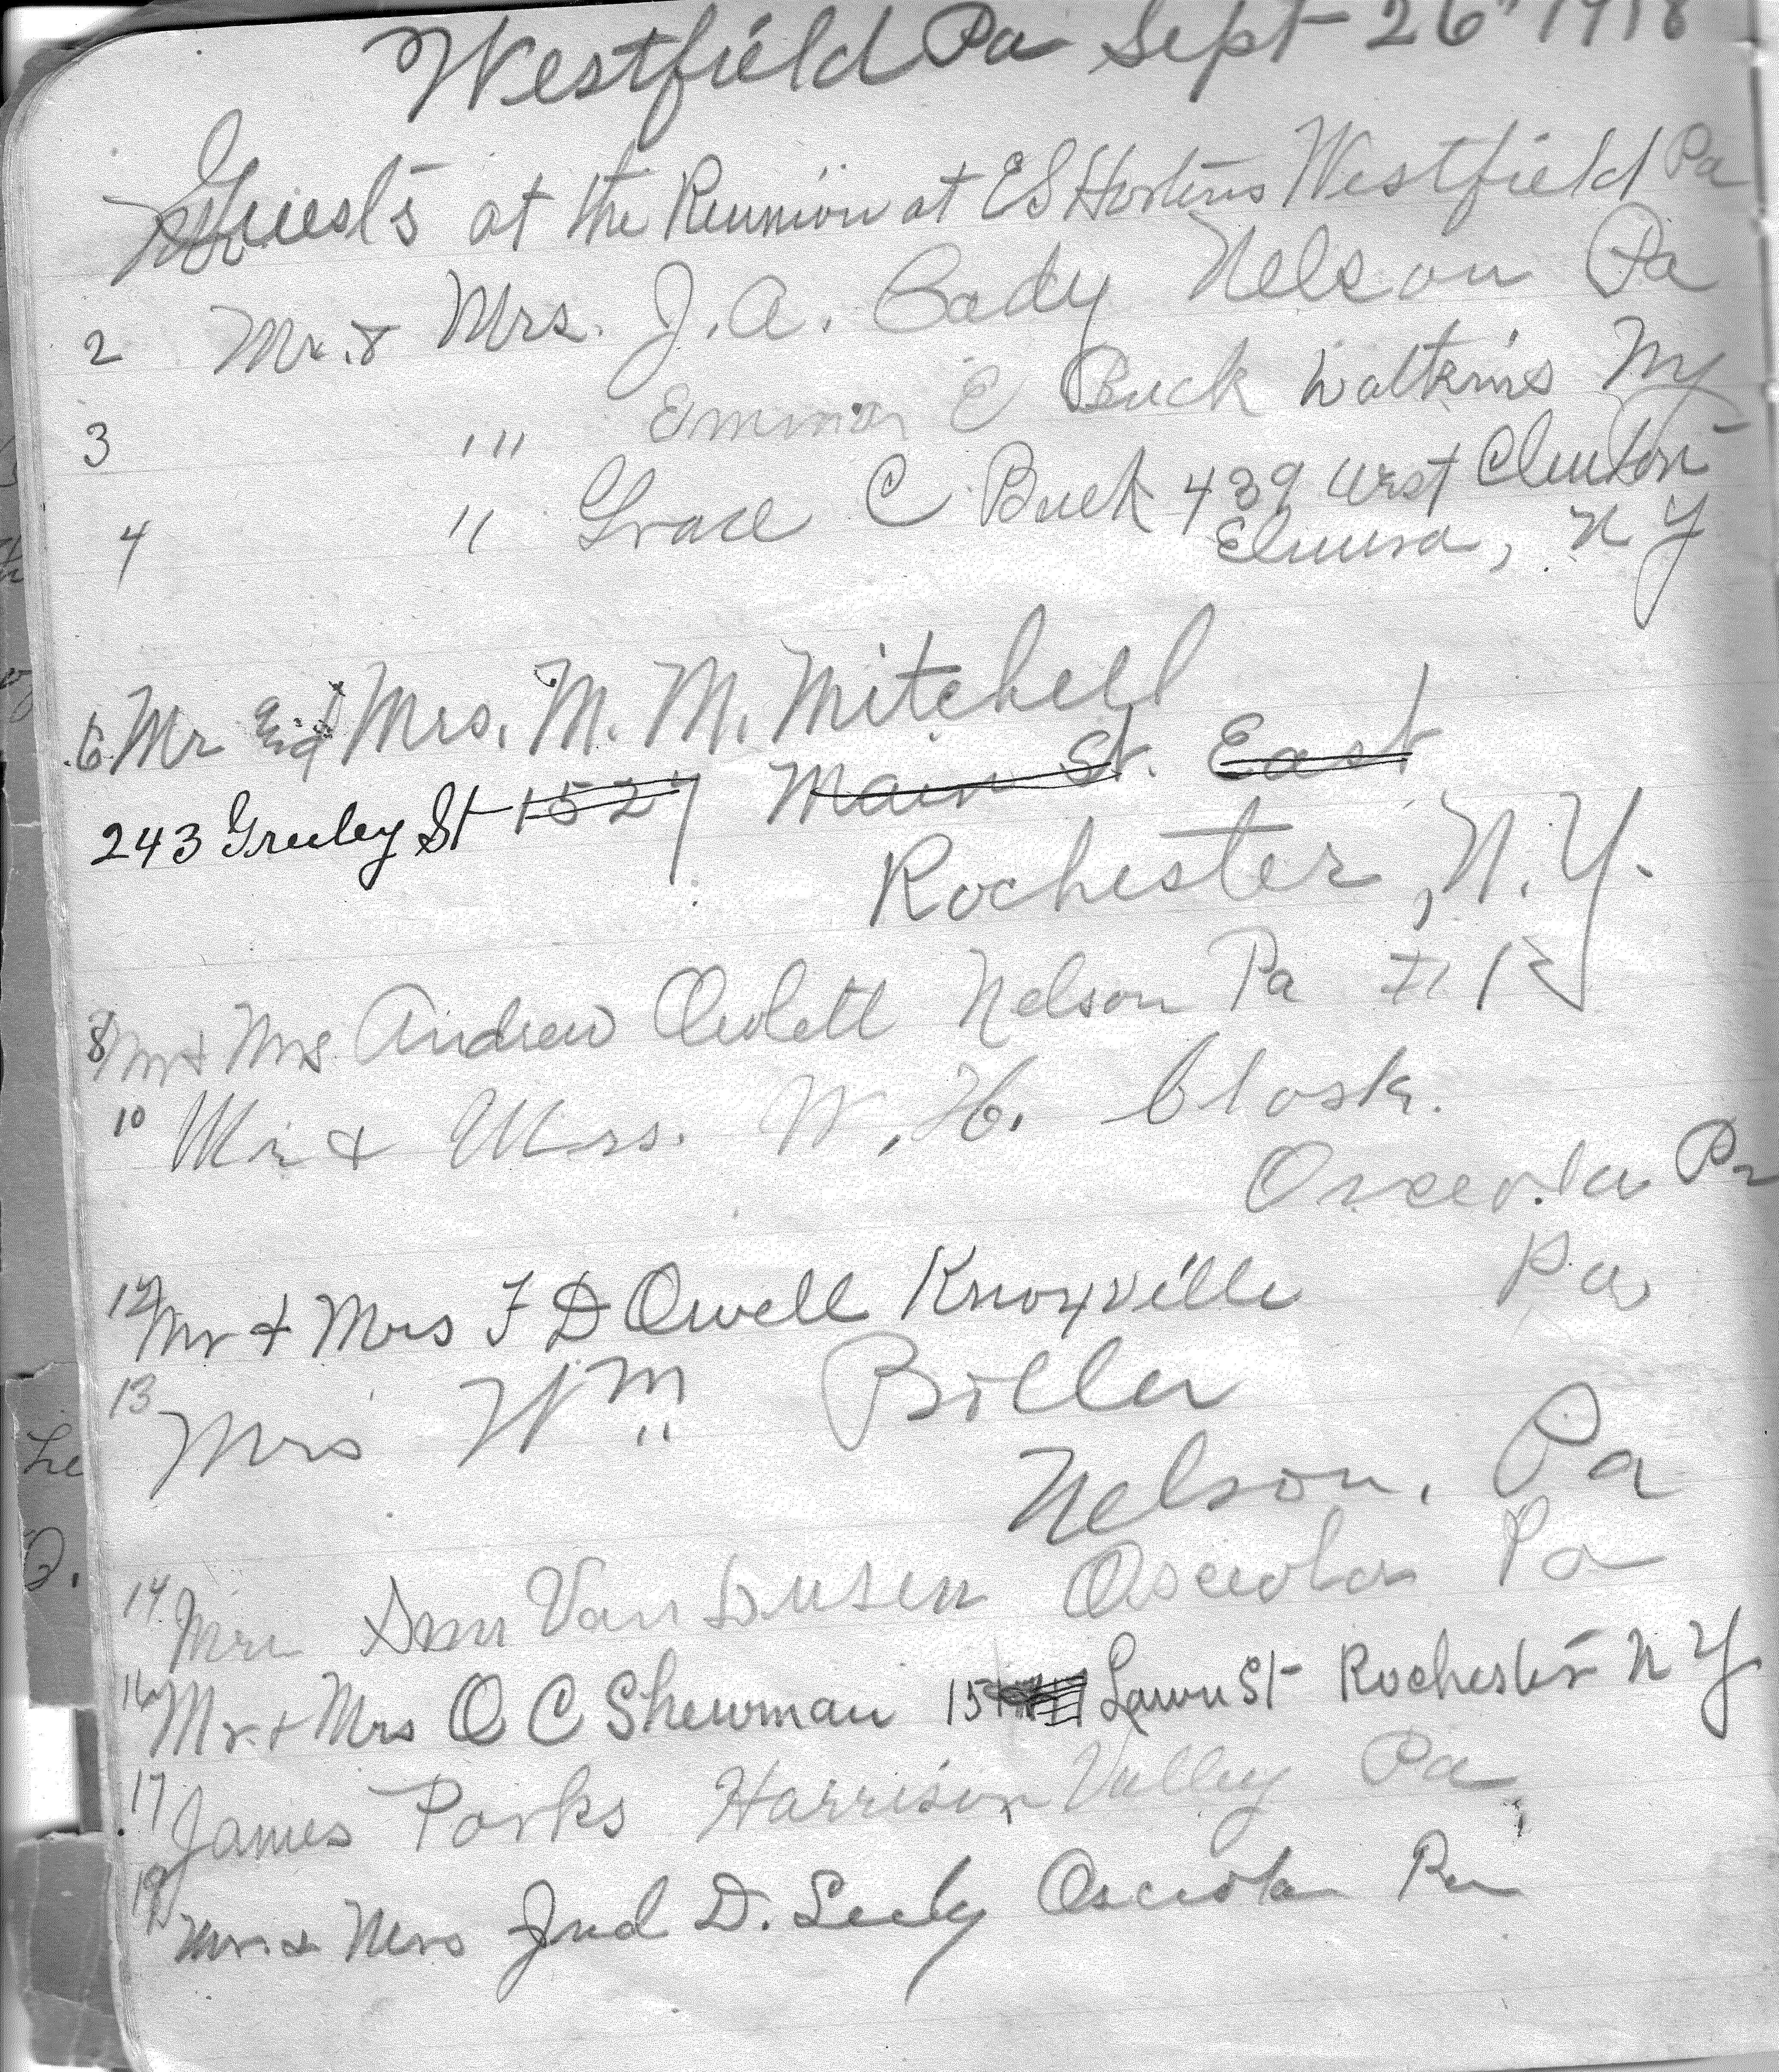 Westfield Pa Sept 26" 1918
Guests at the Reunion at E S Hortons Westfield Pa
2 Mr. & Mrs. J. A. Cady Nelson Pa
3 " " Emma E Buck Watkins NY
4 " Grace C Buck 439 West Clinton
Elmira, N Y
6. Mr and Mrs. M. M. Mitchell
243 Greeley St 1527 Main St. East
Rochester, N. Y.
8 Mr & Mrs Andrew Owlett Nelson Pa
10 Mr & Mrs. W. H. Clark.
Osceola Pa
12 Mr & Mrs F D Owlell Knoxville Pa
13 Mrs Wm Biller
Nelson, Pa
14 Mrs Van Dusen Osceola Pa
16 Mr & Mrs O C Shewman 15 Lawn St Rochester N Y
17 James Parks Harrison Valley Pa
19 Mr & Mrs Jud D. Seely Osceola Pa